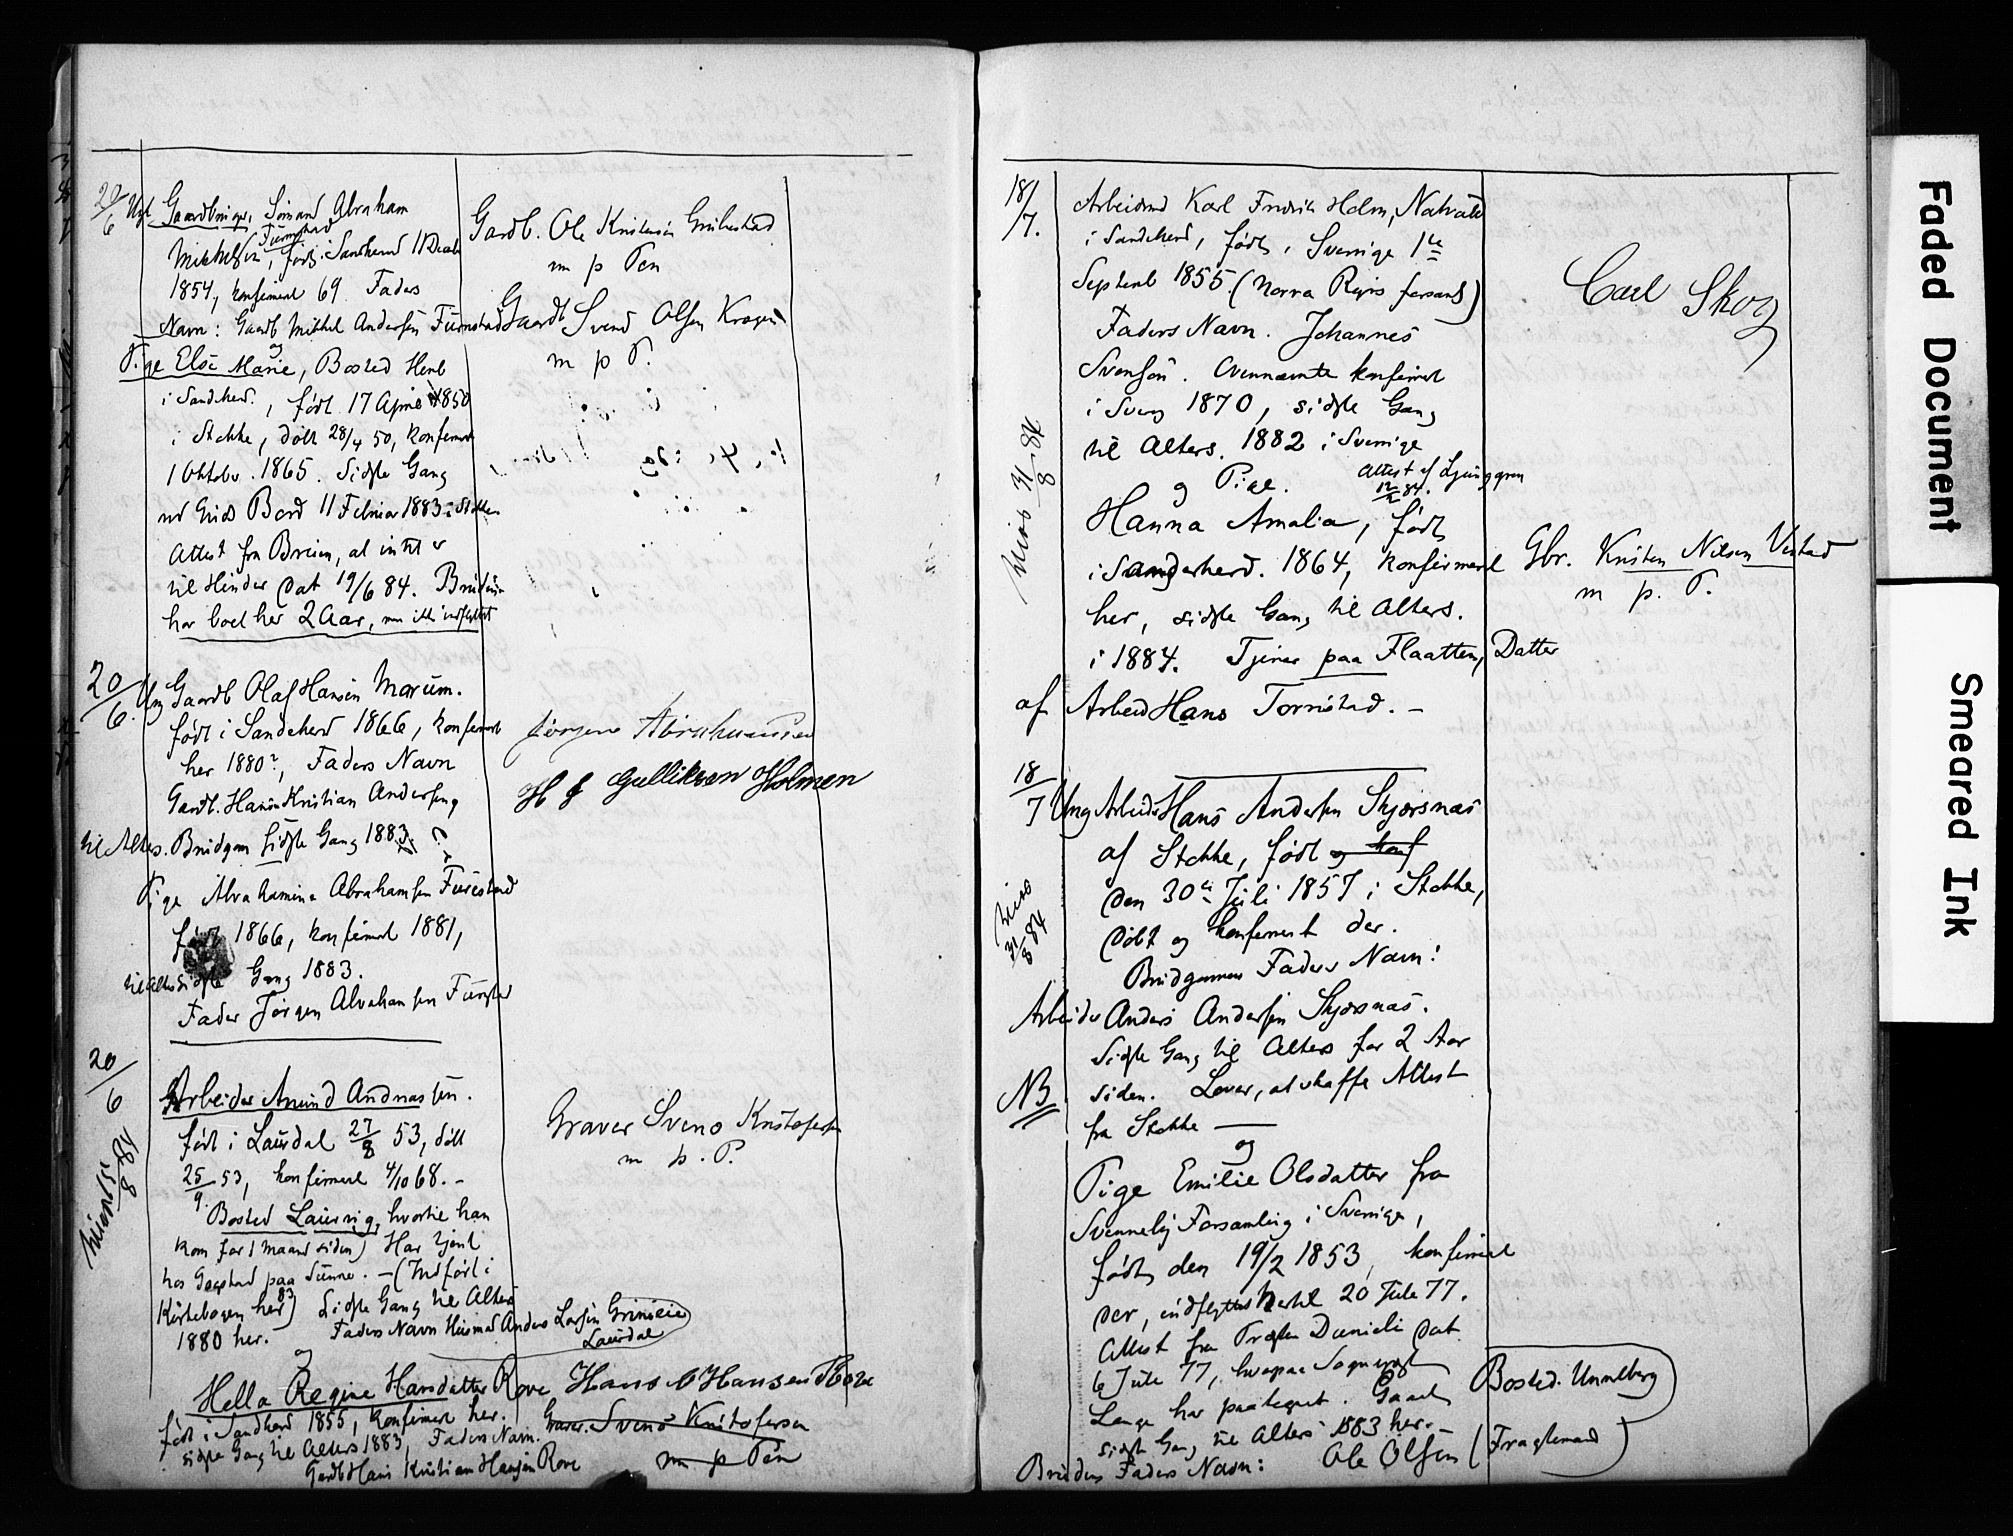 20/6 Ugl Gaardbruger, Sømand Abraham
Mikkelsen, Furustad født i Sandeherd 11 Decbr
1854, konfirmert 69. Faders
Navn: Gaardb Mikkel Andersen Furustad
og
Pige Else Marie, Bosted Hem
i Sandeherd, født 17 April 1850
i Stokke, døbt 28/4 50, konfirmert
1 Oktober 1865. Sidste Gang
ved Guds Bord 11 Februar 1883 i Stokke
Attest fra Breien, at intet er
til Hinder Dat 19/6 84. Bruden
har boet her 2 Aar, men ikke indflyttet
Gardb. Ole Kristensen
m p Pen
Gaardb Svend Olsen Kragen
m p P.
20/6. Ung Gaardb Olaf Hansen Marum.
født i Sandeherd 1866, konfirmert
her 1880?, Faders Navn
Gardb. Hans Kristian Andersen
til Alters. Brudgom sidste Gang 1883.
Pige Abrahamine Abrahamsen Furustad
født 1866, konfirmert 1881,
til Alters sidste Gang 1883.
Fader Jørgen Abrahamsen Furustad
Jørgen Abrahamsen
H J Gulliksen Holmen
20/6
Arbeider Amund Andreassen.
født i Laurdal 27/8 53, døbt
25/9 53, konfirmert 4/10 68. -
Bosted Laurvig, hvortil han
kom for 1 Maaned siden) Har tjent
hos Gogstad paa Sunne. - (Indført i
Kirkebogen her) 83 Sidste Gang til Alters
1880 her. Faders Navn Husmd Anders Larsen
Laurdal
og
Hella Regine Hansdatter Rove
født i Sandherd 1855, konfirmert her.
sidste Gang til Alters 1883, Faders Navn.
Gardb Hans Kristian Hansen Rove
Graver Svend Kristofersen
m p. P.
Hans C Hansen Rove
Graver. Svend Kristofersen
m p Pen
18/7. Arbeidsmd Karl Fredrik Holm,
i Sandeherd, født i Sverige 1ste
Septemb 1855 (Norra forsaml)
Faders Navn. Johannes
Svensøn. Ovennævnte konfirmert
i Sverig 1870, sidste Gang
til Alters. 1882 i Sverige
og Pige. Attest af Ljunggren
12/2 84.
Hanna Amalia, født
i Sandeherd. 1864, konfirmert
her, sidste Gang til Alters.
i 1884. Tjener paa Flaatten, Datter
af Arbeid Hans Tornistad. -
Viede 31/8 84
Carl Skog
Gbr. Kristen Nilsen Vestad
m p. P.
18/7 Ung Arbeider Hans Andersen Skjørsnæs
af Stokke, født og konf
den 30te Juli 1857 i Stokke,
Døbt og konfirmert der.
Brudgommens Faders Navn:
Arbeider Anders Andersen Skjørsnæs.
Sidste Gang til Alters for 2 Aar
siden. Lover, at skaffe Attest
NB
fra Stokke —
Viede 31/8 84
og
Pige Emilie Olsdatter fra
Svenneby Forsamling i Sverige,
født den 19/2 1853, konfirmert
der, indflyttet hertil 20 Juli 77.
Attest fra Prosten Danieli Dat.
6 Juli 77, hvorpaa Sogneprest
Lange har paategnet. Gaaet
sidste Gang til Alters 1883 her.
Brudens Faders Navn: Ole Olsen (Fragtemand)
Bosted. Unneberg
Faded Document
Smeared Ink